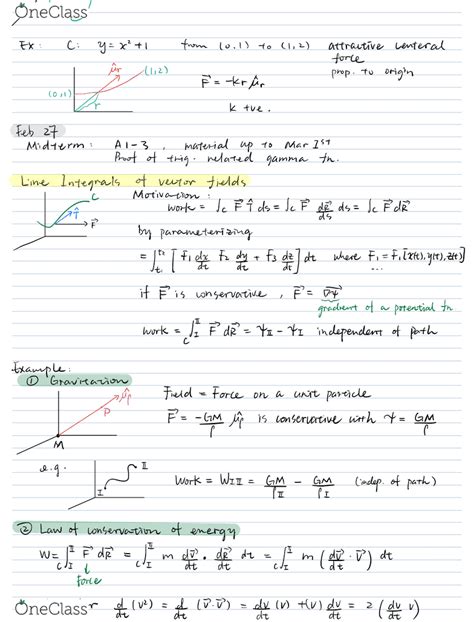 OneClass
Ex: C: y = x² + 1 from (0,1) to (1,2) attractive centeral
force
prop. to origin
μ̂r (1,2)
(0,1) r
F⃗ = -kr μ̂r
k +ve.
Feb 27
Midterm: A1-3, material up to Mar 1st
Proof of trig. related gamma fn.
Line Integrals of vector fields
Motivation:
C T̂ F⃗
work = ∫c F⃗ T̂ ds = ∫c F⃗ dR⃗/ds ds = ∫c F⃗ dR⃗
by parameterizing
= ∫t₁^t₂ [F₁ dx/dt F₂ dy/dt + F₃ dz/dt] dt where F₁ = F₁[x(t), y(t), z(t)]
...
if F⃗ is conservative, F⃗ = ∇⃗Ψ
gradient of a potential fn
work = c∫I^II F⃗ dR⃗ = ΨII - ΨI independent of path
Example:
① Gravitation
μ̂ρ
ρ
M
Field = Force on a unit particle
F⃗ = -GM/ρ μ̂ρ is conservative with Ψ = GM/ρ
e.g. I II
Work = WI II = GM/ρII - GM/ρI (indep. of path)
② Law of conservation of energy
W = c∫I^II F⃗ dR⃗ = c∫I^II m dv⃗/dt · dR⃗/dt dt = c∫I^II m (dv⃗/dt · v⃗) dt
force
OneClass r d/dt (v²) = d/dt (v⃗·v⃗) = dv/dt (v) + (v) dv/dt = 2 (dv/dt v)